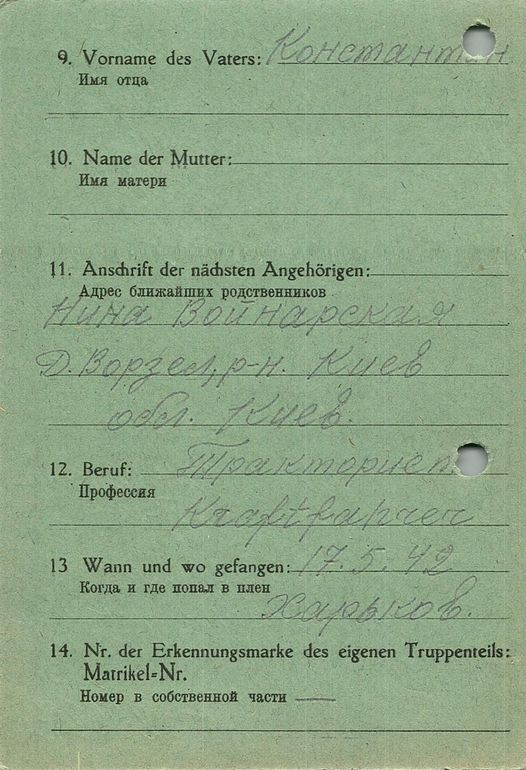 9. Vorname des Vaters: Константин
Имя отца
10. Name der Mutter:
Имя матери
11. Anschrift der nächsten Angehörigen:
Адрес ближайших родственников
Нина Войнарская
Д. Ворзел, р-н. Киев
обл. Киев.
12. Beruf: Тракторист
Профессия
Kraftfahrer
13 Wann und wo gefangen: 17.5.42
Когда и где попал в плен
Харьков.
14. Nr. der Erkennungsmarke des eigenen Truppenteils:
Matrikel-Nr.
Номер в собственной части —